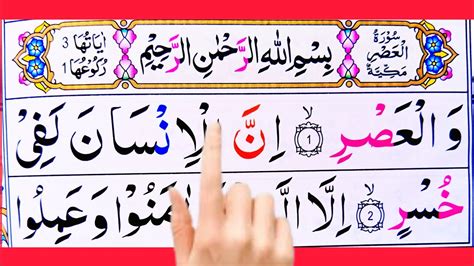 سُوْرَةُ الْعَصْرِ مَكِّيَّةٌ
بِسْمِ اللّٰهِ الرَّحْمٰنِ الرَّحِيْمِ
اٰيَاتُهَا 3
رُكُوْعُهَا 1
وَ الْعَصْرِ ۙ ‎﴿1﴾ اِنَّ الْاِنْسَانَ لَفِيْ
خُسْرٍ ۙ ‎﴿2﴾ اِلَّا مَنُوْا وَ عَمِلُوا